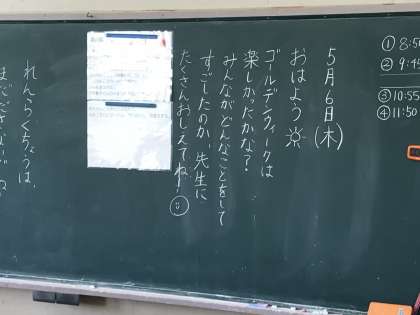 5月6日(木)
おはよう
ゴールデンウィークは
楽しかったかな?
みんながどんなことをして
すごしたのか、先生に
たくさんおしえてね!
れんらくちょうは、
① 8:50
② 9:45
③ 10:55
④ 11:50